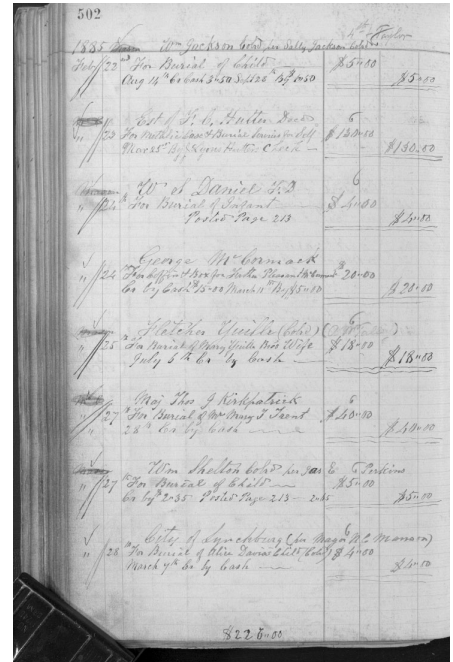 502
1885 Wm Jackson Cold per Sally Jackson Cold Taylor
Feby 22nd For Burial of Child $5.00
Aug 14th Cr Cash Sept 26th By $5.00
Est of Hutter Decd 6
23 For Metallic Case & Burial Service for Self $130.00
By Hutter Check $130.00
W S Daniel 6
24th For Burial of Infant $4.00
Posted Page 213 $4.00
George McCormack
24th For Coffin & Box for $20.00
Cr by Cash 15.00 March 11th By $5.00 $20.00
Fletcher (Cold) 6
25th For Burial of Mary his Wife $18.00
July 6th Cr by Cash $18.00
Maj Thos J Kirkpatrick 6
27th For Burial of Mr Mary T Trent $40.00
28th Cr by Cash $40.00
Wm Shelton Cold per Jas E Perkins 6
27th For Burial of Child $5.00
Cr by 2.35 Posted Page 213 2.65 $5.00
City of Lynchburg (per Mayor N C Manson) 6
28th For Burial of Davis (Cold) $4.00
March 7th Cr by Cash $4.00
$226.00